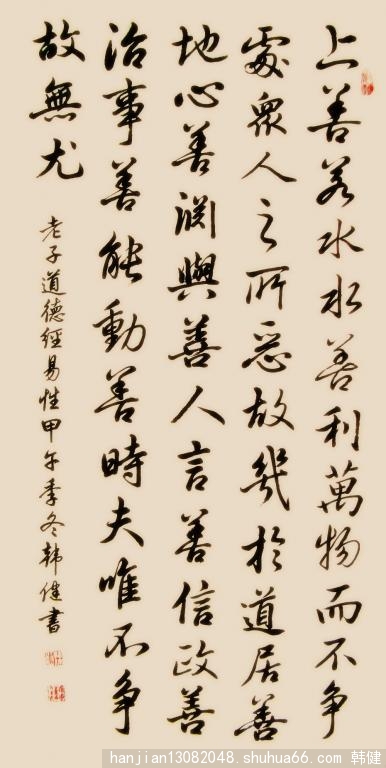 上善若水水善利萬物而不争
處衆人之所惡故幾於道居善
地心善渊與善人言善信政善
治事善能動善時夫唯不争
故無尤
老子道德經易性甲午季冬韩健書
hanjian13082048.shuhua66.com 韩健